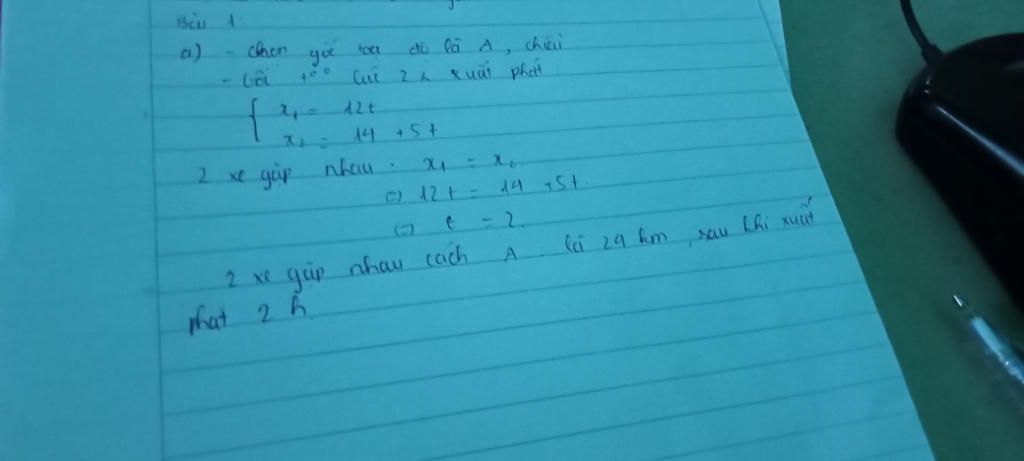 Bài 1
a) - chọn gốc toạ độ là A, chiều
- t=0 lúc 2 xe xuất phát
x₁ = 12t
x₂ = 14 + 5t
2 xe gặp nhau : x₁ = x₂
⇔ 12t = 14 + 5t
⇔ t = 2.
2 xe gặp nhau cách A là 24 km, sau khi xuất
phát 2 h